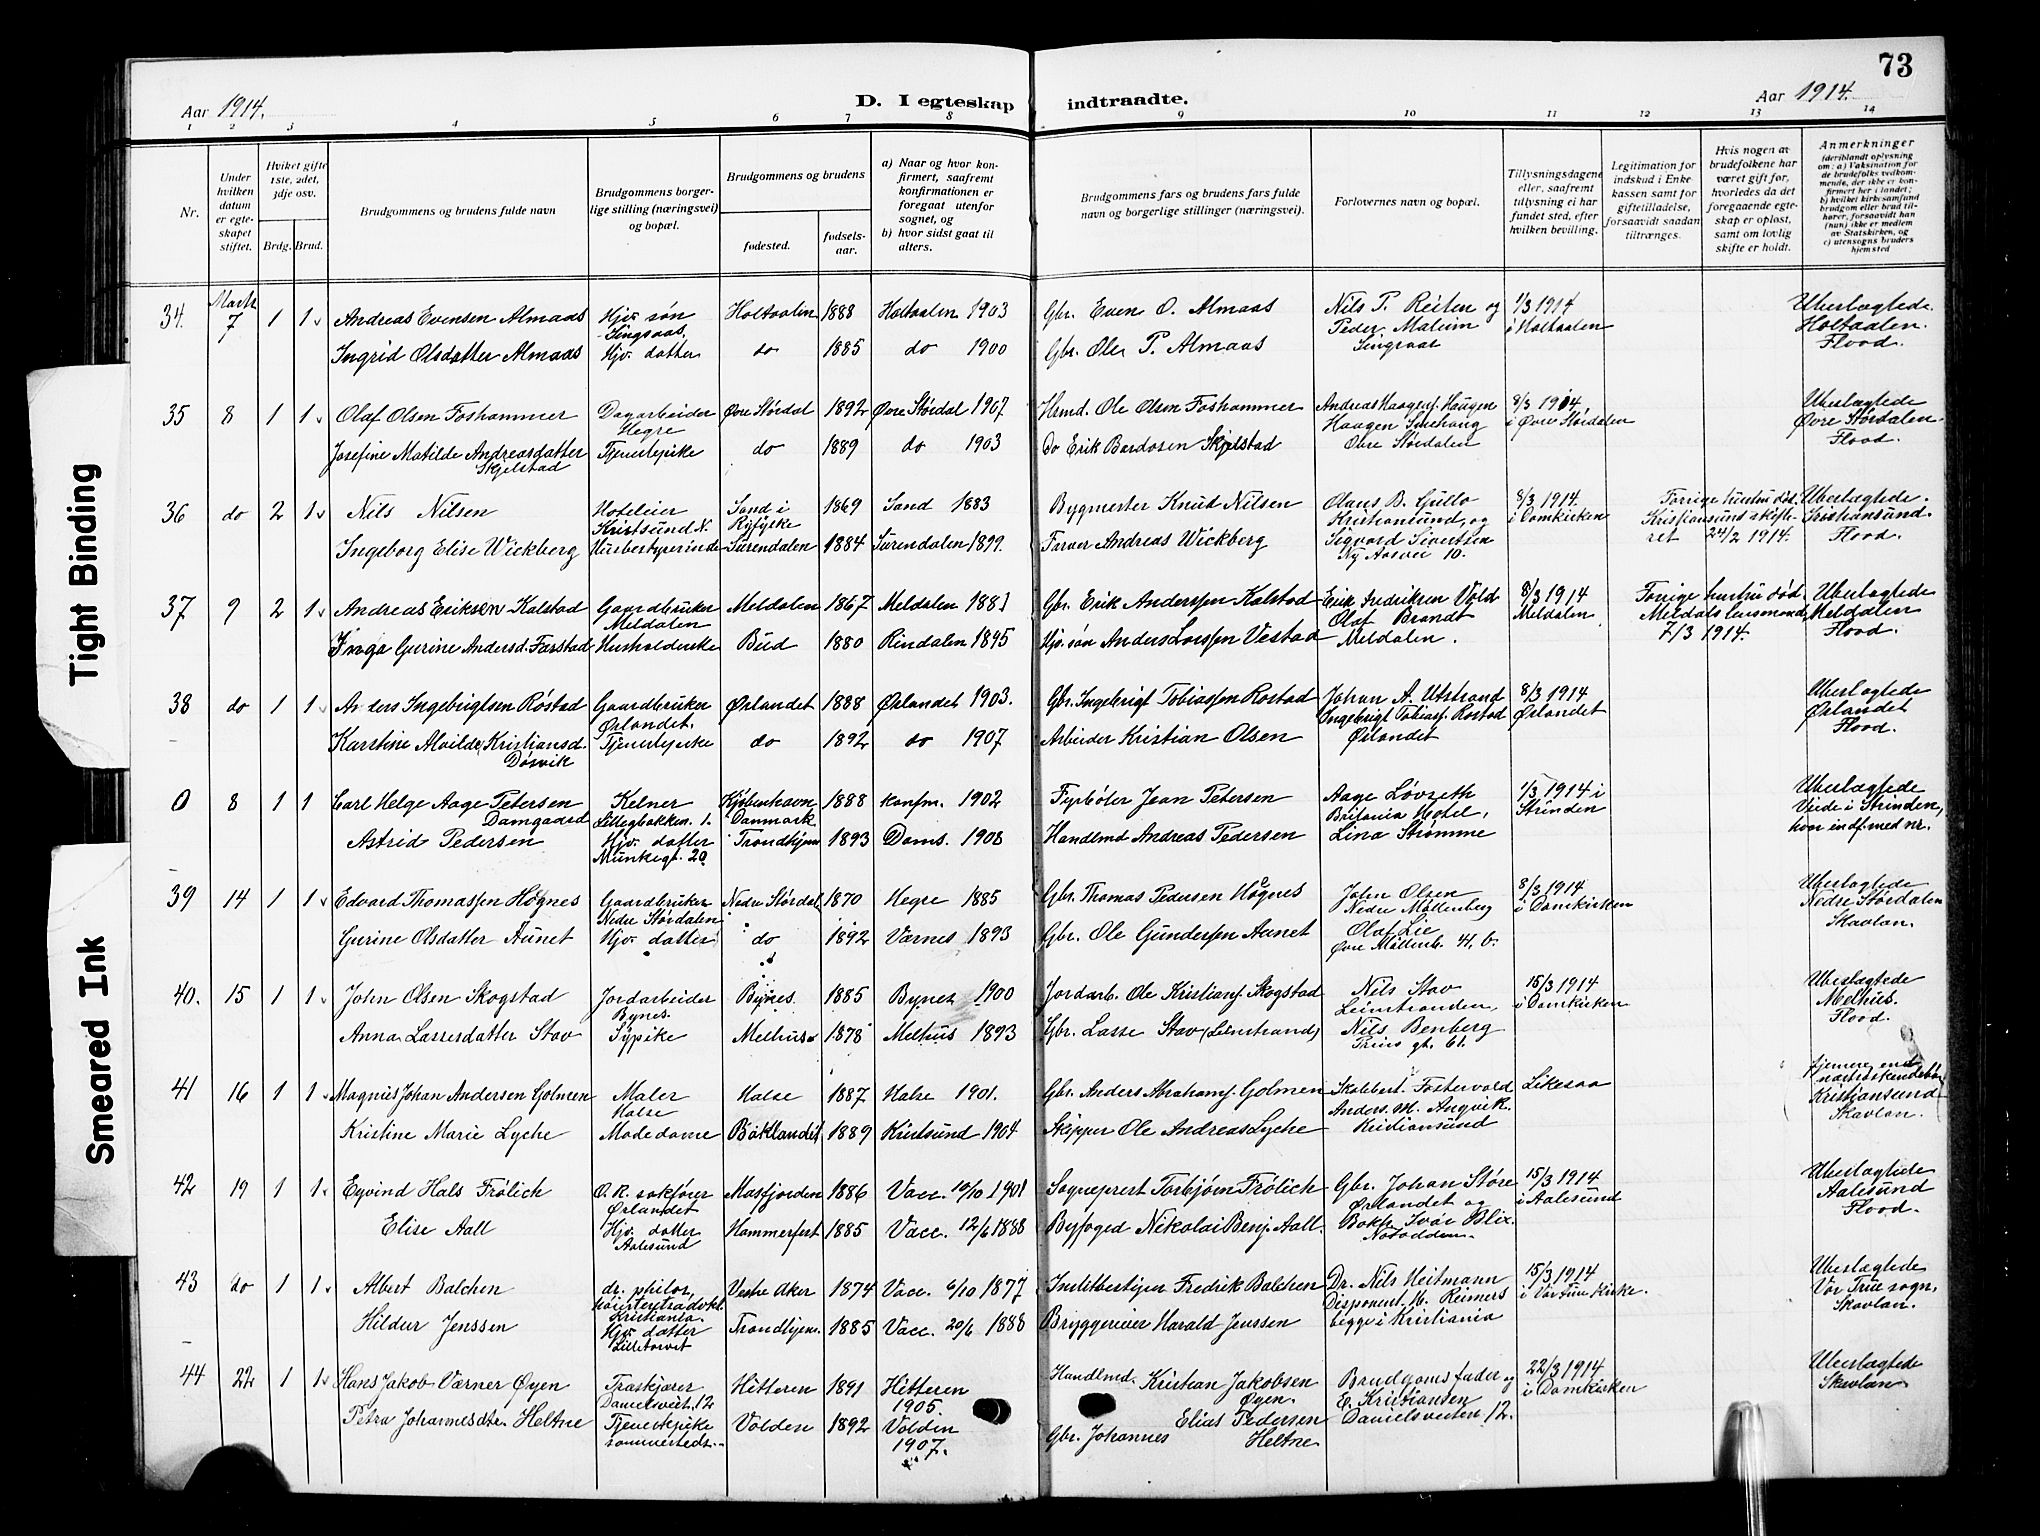 73
Aar 1914.
D. I egteskap indtraadte.
Aar 1914.
1 2 3 4 5 6 7 8 9 10 11 12 13 14
Nr.
Under hvilken datum er egteskapet stiftet.
Hvilket gifte 1ste, 2det, 3dje osv.
Brdg. Brud.
Brudgommens og brudens fulde navn
Brudgommens borgerlige stilling (næringsvei) og bopæl.
Brudgommens og brudens
fødested.
fødselsaar.
a) Naar og hvor konfirmert, saafremt konfirmationen er foregaat utenfor sognet, og
b) hvor sidst gaat til alters.
Brudgommens fars og brudens fars fulde navn og borgerlige stillinger (næringsvei).
Forlovernes navn og bopæl.
Tillysningsdagene eller, saafremt tillysning ei har fundet sted, efter hvilken bevilling.
Legitimation for indskud i Enkekassen samt for giftetilladelse, forsaavidt saadan tiltrænges.
Hvis nogen av brudefolkene har været gift før, hvorledes da det foregaaende egteskap er opløst, samt om lovlig skifte er holdt.
Anmerkninger
(deriblandt oplysning om: a) Vaksination for de brudefolks vedkommende, der ikke er konfirmert her i landet; b) hvilket kirkesamfund brudgom eller brud tilhører, forsaavidt han (hun) ikke er medlem av Statskirken, og c) utensogns bruders hjemsted
34. Marts 7 1 1 Andreas Evensen Almaas Hjv. søn Singsaas, Holtaalen 1888 Holtaalen 1903 Gbr. Even O. Almaas Nils P. Reiten og Peder Malum Singsaas 1/3 1914 i Holtaalen Ubeslægtede. Holtaalen. Flood.
Ingrid Olsdatter Almaas Hjv. datter do 1885 do 1900 Gbr. Ole P. Almaas
35 8 1 1 Olaf Olsen Foshammer Dagarbeider Hegre Øvre Stördal 1892 Øvre Stördal 1907 Hsmd. Ole Olsen Foshammer Andreas Haagens. Haugen Haagen Øvre Stördalen 8/3 1914 i Øvre Stördalen Ubeslægtede Øvre Stördalen. Flood.
Josefine Matilde Andreasdatter Skjelstad Tjenestepike do 1889 do 1903 Do Erik Bardosen Skjelstad
36 do 2 1 Nils Nilsen Hoteleier Kristsund N. Sand i Ryfylke 1869 Sand 1883 Bygmester Knud Nilsen Olaus B. Gullo Kristiansund, og Sigvard Sivertsen Ny Aasvei 10. 8/3 1914. i Domkirken Forrige hustru død. Kristiansund skifteret 24/2 1914. Ubeslægtede. Kristiansund. Flood.
Ingeborg Elise Wickberg Husbestyrerinde Surendalen 1884 Surendalen 1899. Farver Andreas Wickberg
37 9 2 1 Andreas Eriksen Kalstad Gaardbruker Meldalen Meldalen 1867 Meldalen 1881 Gbr. Erik Anderssen Kalstad Erik Fredriksen Vold Olaf Brandt Meldalen. 8/3 1914 Meldalen Forrige hustru død. Meldals lensmand 7/3 1914. Ubeslægtede Meldalen Flood.
Inga Gurine Andersd. Farstad Husholderske Bud 1880 Rindalen 1895 Hjv. søn Anders Larssen Vestad
38 do 1 1 Anders Ingebrigtsen Röstad Gaardbruker Ørlandet. Ørlandet 1888 Ørlandet 1903. Gbr. Ingebrigt Tobiassen Rostad Johan A. Utstrand Ingebrigt Tobiass. Rostad Ørlandet 8/3 1914 Ørlandet Ubeslægtede Ørlandet Flood.
Karstine Alvilde Kristiansd. Dösvik Tjenestepike do 1892 do 1907 Arbeider Kristian Olsen
0 8 1 1 Carl Helge Aage Petersen Damgaard Kelner Lillegbakken. 1. Kjøbenhavn Danmark 1888 konfm. 1902 Fyrböter Jean Petersen Aage Lövseth Britania Hotel, Lina Strømme 1/3 1914 i Strinden Ubeslægtede Viede i Strinden, hvor indf. med nr.
Astrid Pedersen Hjv. datter Munkegt. 20. Trondhjem 1893 Doms. 1908 Handlmd Andreas Pedersen
39 14 1 1 Edvard Thomassen Hognes Gaardbruker Nedre Stördalen Nedre Stördal 1870 Hegre 1885 Gbr. Thomas Pedersen Hognes John Olsen Nedre Möllenberg Olaf Lie Øvre Möllenb. 41. b. 8/3 1914. i Domkirken Ubeslægtede Nedre Stördalen Skavlan.
Gurine Olsdatter Aunet Hjv. datter do 1892 Værnes 1893 Gbr. Ole Gunderssen Aunet
40. 15 1 1 John Olsen Skogstad Jordarbeider Bynes. Bynes. 1885 Bynes 1900 Jordarb. Ole Kristians. Skogstad Nils Stav Leinstranden, Nils Benberg Prins gt. 61. 15/3 1914 i Domkirken Ubeslægtede Melhus. Flood.
Anna Lassesdatter Stav Sypike Melhus 1878 Melhus 1893 Gbr. Lasse Stav (Leinstrand)
41 16 1 1 Magnus Johan Andersen Golmen Maler Halse Halse 1887 Halse 1901. Gbr. Anders Abrahams. Golmen Fostervold Anders. M. Angvik. Kristiansund Likesaa Kristiansund Skavlan.
Kristine Marie Lyche Modedame Baklandet 1889 Kristsund 1904 Skipper Ole Andreas Lyche
42 19 1 1 Eyvind Hals Frölich O. R. sakfører Ørlandet Masfjorden 1886 Vacc. 19/10 1901 Sogneprest Torbjörn Frölich Gbr. Johan Störe Ørlandet og Bokh. Ivar Blix. Notodden. 15/3 1914 i Aalesund Ubeslægtede Aalesund Flood.
Elise Aall Hjv. datter Aalesund Hammerfest 1885 Vacc. 12/6 1888 Byfoged Nikolai Benj. Aall.
43 do 1 1 Albert Balchen dr. philos, høiesteretsadvokat Kristiania. Vestre Aker 1874 Vacc. 6/10 1877 Institbestyrer Fredrik Balchen Dr. Nils Heitmann Disponent H. Reimers begge i Kristiania 15/3 1914 i Vor Frue Kirke. Ubeslægtede Vor Frue sogn. Skavlan.
Hildur Jenssen Hjv. datter Lilletorvet Trondhjem. 1885 Vacc. 20/6 1888 Bryggerieier Harald Jenssen
44 22 1 1 Hans Jakob Værner Øyen Træskjærer Danielsveit. 12 Hitteren 1891 Hitteren 1905 Handlmd. Kristian Jakobsen Øyen. Brudgoms fader og E. Kristiansen Danielsveiten 12. 22/3 1914 i Domkirken Ubeslægtede Skavlan
Petra Johannesdtr. Heltne Tjenestepike sommersteds. Volden 1892 Volden 1907. Gbr. Johannes Elias Pedersen Heltne
Tight Binding
Smeared Ink